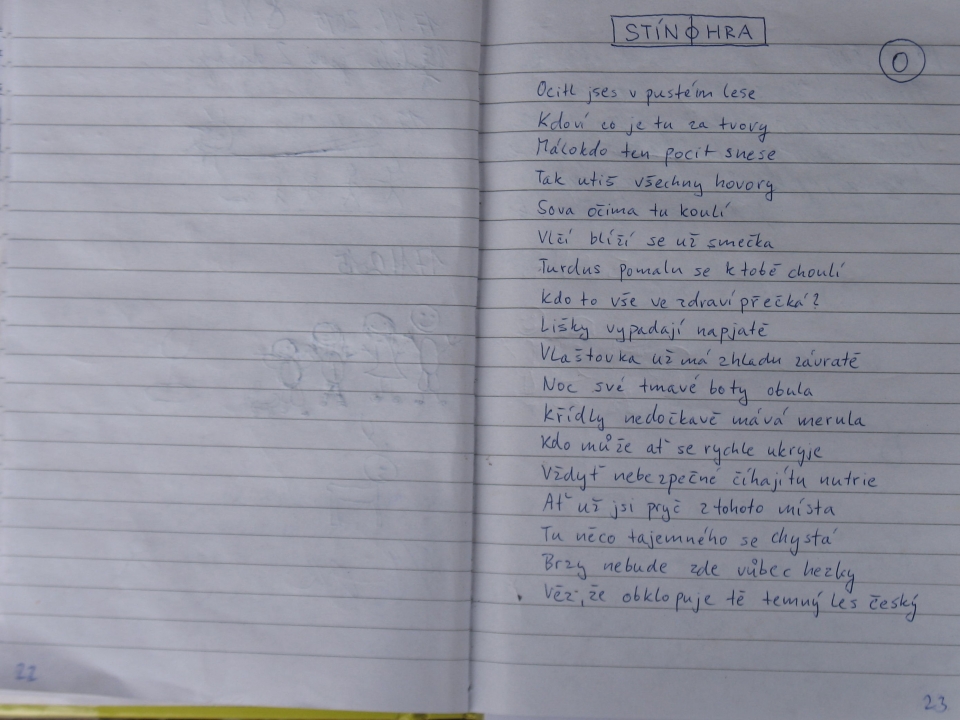 STÍNOHRA
O
Ocitl jses v pustém lese
Kdoví co je tu za tvory
Málokdo ten pocit snese
Tak utiš všechny hovory
Sova očima tu koulí
Vlčí blíží se už smečka
Turdus pomalu se k tobě choulí
Kdo to vše ve zdraví přečká?
Lišky vypadají napjatě
Vlaštovka už má z hladu závratě
Noc své tmavé boty obula
Křídly nedočkavě mává merula
Kdo může ať se rychle ukryje
Vždyť nebezpečné číhají tu nutrie
Ať už jsi pryč z tohoto místa
Tu něco tajemného se chystá
Brzy nebude zde vůbec hezky
Věz, že obklopuje tě temný les český
22
23